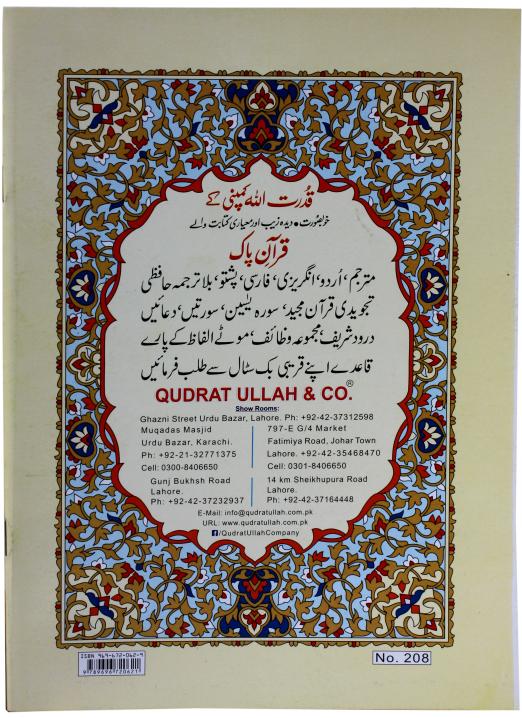 قدرت اللہ کمپنی کے
خوبصورت • دیدہ زیب اور معیاری کتابت والے
قرآن پاک
مترجم، اُردو، انگریزی، فارسی، پشتو، بلا ترجمہ حافظی
تجویدی قرآن مجید، سورہ یٰسین، سورتیں، دعائیں
درود شریف، مجموعہ وظائف، موٹے الفاظ کے پارے
قاعدے اپنے قریبی بک سٹال سے طلب فرمائیں
QUDRAT ULLAH & CO.®
Show Rooms:
Ghazni Street Urdu Bazar, Lahore. Ph: +92-42-37312598
Muqadas Masjid
Urdu Bazar, Karachi.
Ph: +92-21-32771375
Cell: 0300-8406650
797-E G/4 Market
Fatimiya Road, Johar Town
Lahore. +92-42-35468470
Cell: 0301-8406650
Gunj Bukhsh Road
Lahore.
Ph: +92-42-37232937
14 km Sheikhupura Road
Lahore.
Ph: +92-42-37164448
E-Mail: info@qudratullah.com.pk
URL: www.qudratullah.com.pk
f/QudratUllahCompany
ISBN 969-672-062-9
9 789696 720621
No. 208